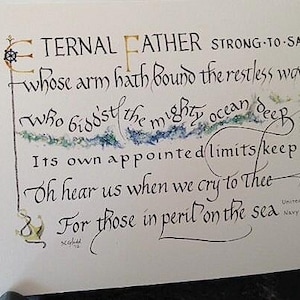 ETERNAL FATHER STRONG·TO·SA
whose arm hath bound the restless wa
who bidd'st the mighty ocean deep
Its own appointed limits keep
Oh hear us when we cry to Thee
For those in peril on the sea
United
Navy